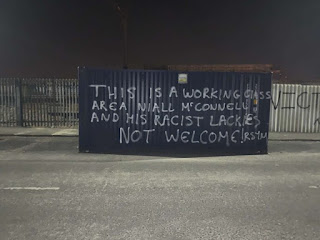 THIS IS A WORKING CLASS
AREA NIALL McCONNELL
AND HIS RACIST LACKIES
NOT WELCOME! RSYM
VICT